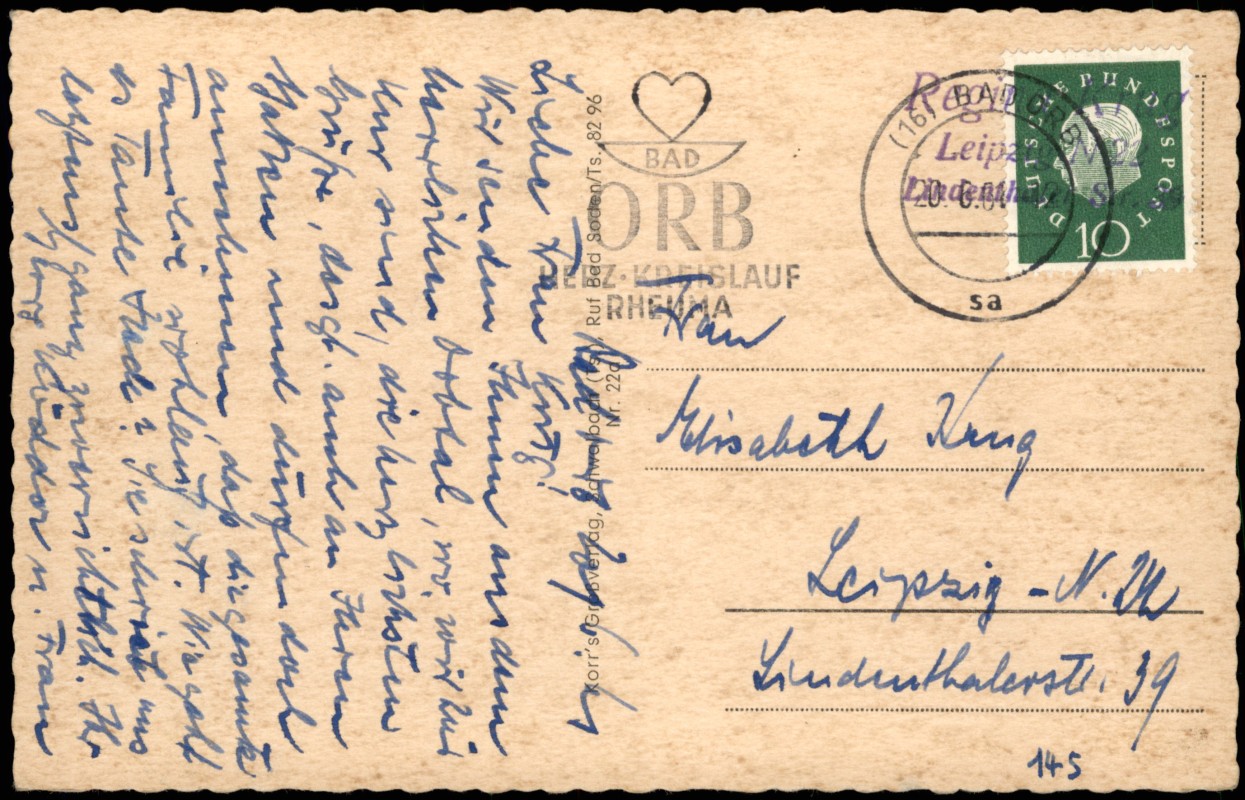 Bad Orb,
Liebe Frau Krug!
Wir senden Ihnen aus dem
herrlichen Orbtal, wo wir zur
Kur sind, die herzlichsten
Grüße, desgl. auch an Ihren
Gatten und dürfen doch
annehmen, daß die gesamte
Familie wohlauf ist. Wie geht
es Tante Hede? Sie schrieb uns
letztens ganz zuversichtlich. Ihr
Georg u. Frau
Korr's Großverlag, Schwalbach (Ts.), Ruf Bad Soden/Ts., 82 96
Nr. 22
BAD
ORB
HERZ·KREISLAUF
RHEUMA
(16) BAD ORB
20. 6.60
sa
DEUTSCHE BUNDESPOST
10
Leipzig N 22
Lindenthaler Str. 39
Frau
Elisabeth Krug
Leipzig - N. 22
Lindenthalerstr. 39
145